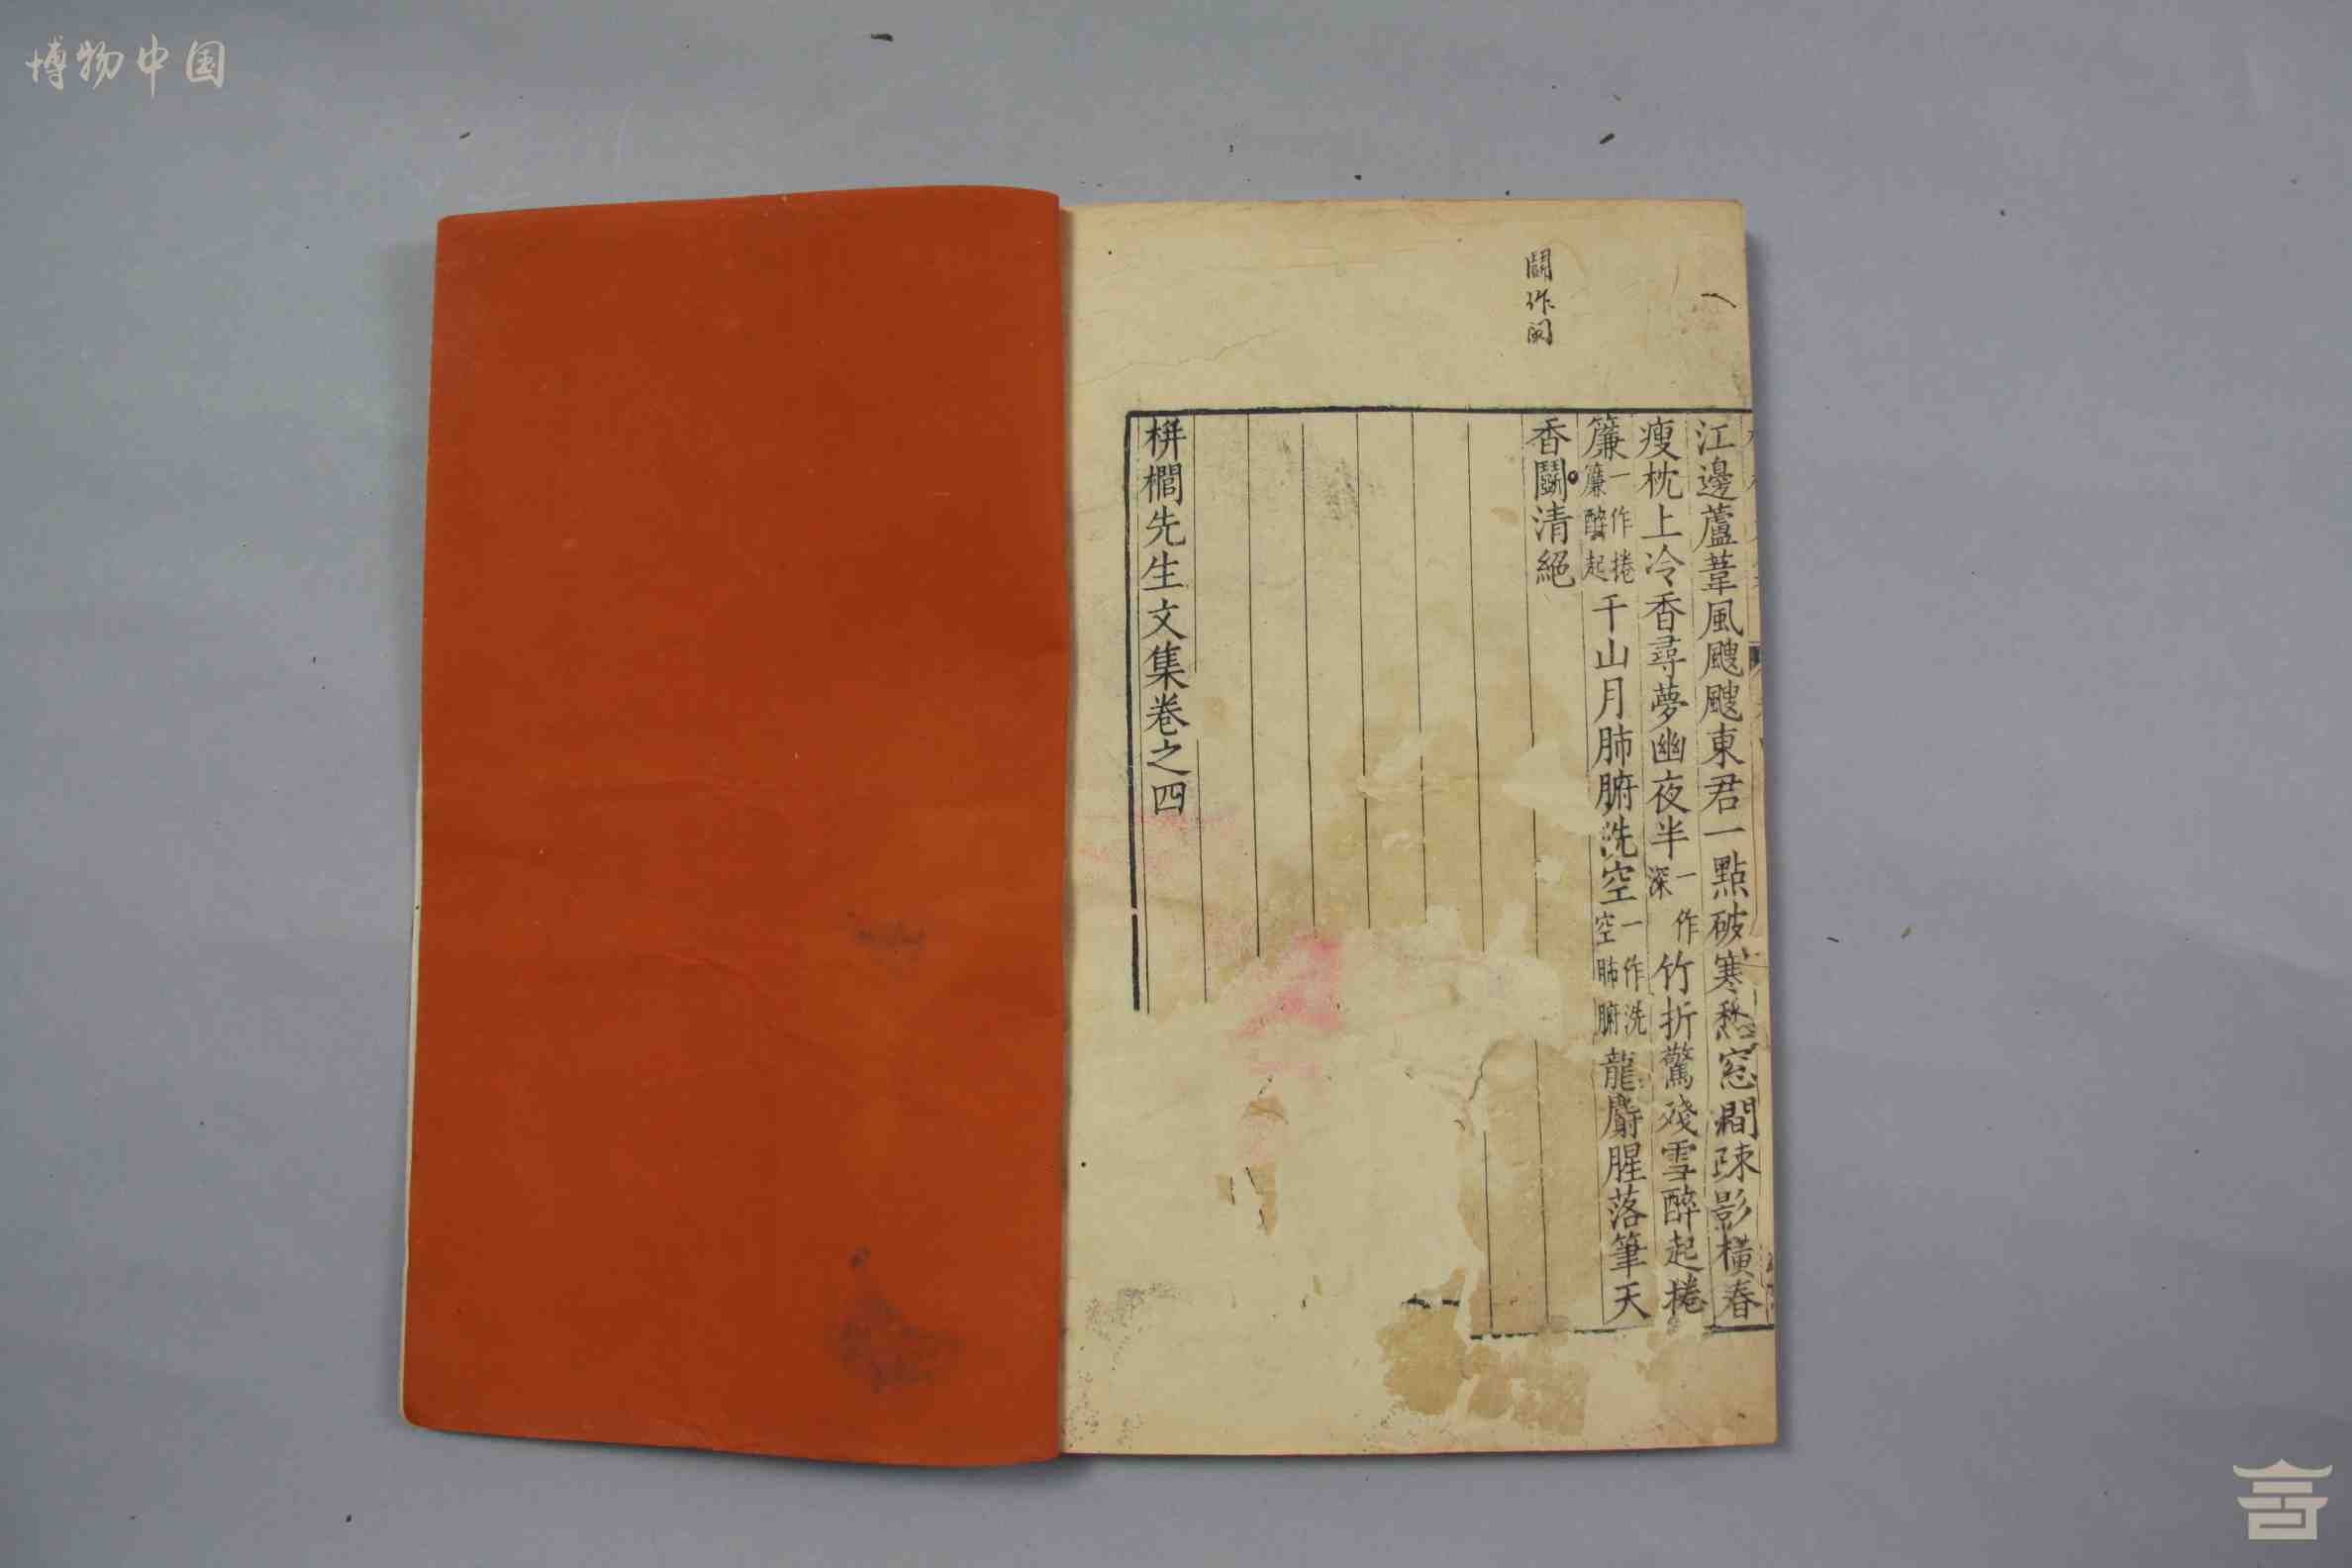 博物中国
鬭作闘
江邊蘆葦風颼颼東君一點破寒愁窓間疎影橫春
瘦枕上冷香尋夢幽夜半一作深竹折驚殘雪醉起捲
簾一作捲簾醉起千山月肺腑洗空一作洗空肺腑龍麝腥落筆天
香鬭清絕
栟櫚先生文集卷之四